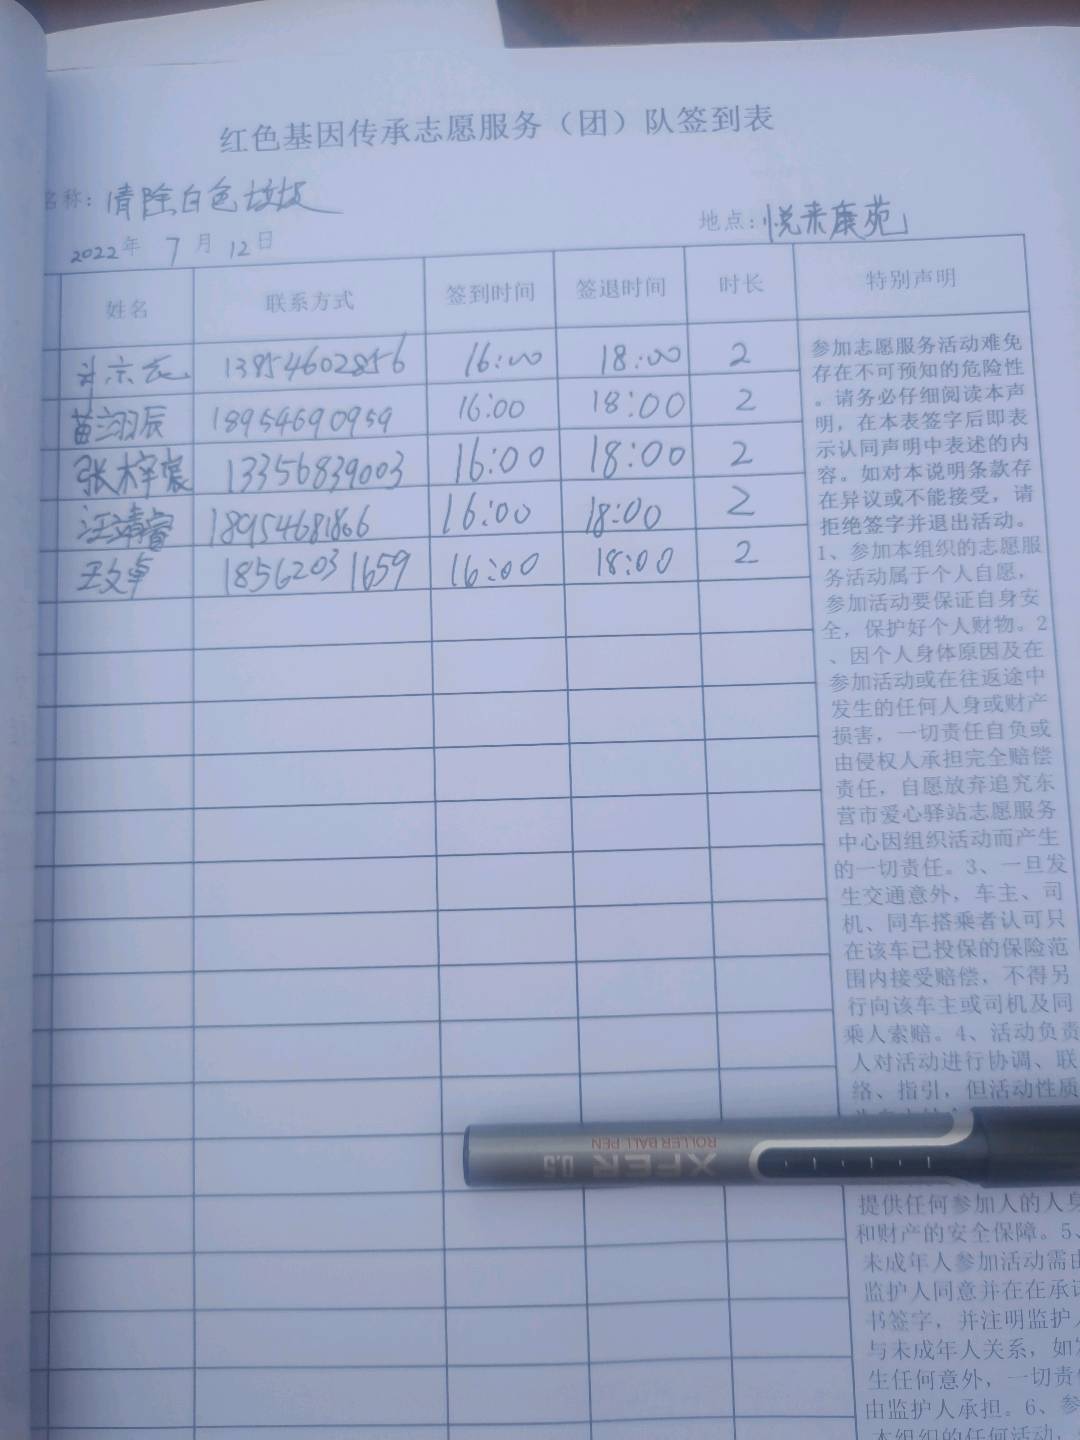 红色基因传承志愿服务（团）队签到表
名称：清除白色垃圾
2022年 7月 12日
地点：悦来康苑
姓名 联系方式 签到时间 签退时间 时长 特别声明
13954602856 16:00 18:00 2
苗翊辰 18954690959 16:00 18:00 2
张梓宸 13356839003 16:00 18:00 2
汪靖睿 18954681866 16:00 18:00 2
王文卓 18562031659 16:00 18:00 2
参加志愿服务活动难免
存在不可预知的危险性
。请务必仔细阅读本声
明，在本表签字后即表
示认同声明中表述的内
容。如对本说明条款存
在异议或不能接受，请
拒绝签字并退出活动。
1、参加本组织的志愿服
务活动属于个人自愿，
参加活动要保证自身安
全，保护好个人财物。2
、因个人身体原因及在
参加活动或在往返途中
发生的任何人身或财产
损害，一切责任自负或
由侵权人承担完全赔偿
责任，自愿放弃追究东
营市爱心驿站志愿服务
中心因组织活动而产生
的一切责任。3、一旦发
生交通意外，车主、司
机、同车搭乘者认可只
在该车已投保的保险范
围内接受赔偿，不得另
行向该车主或司机及同
乘人索赔。4、活动负责
人对活动进行协调、联
络、指引，但活动性质
ROLLER BALL PEN
XFER 0.5
提供任何参加人的人身
和财产的安全保障。5、
未成年人参加活动需由
监护人同意并在在承诺
书签字，并注明监护人
与未成年人关系，如发
生任何意外，一切责任
由监护人承担。6、参
本组织的任何活动，